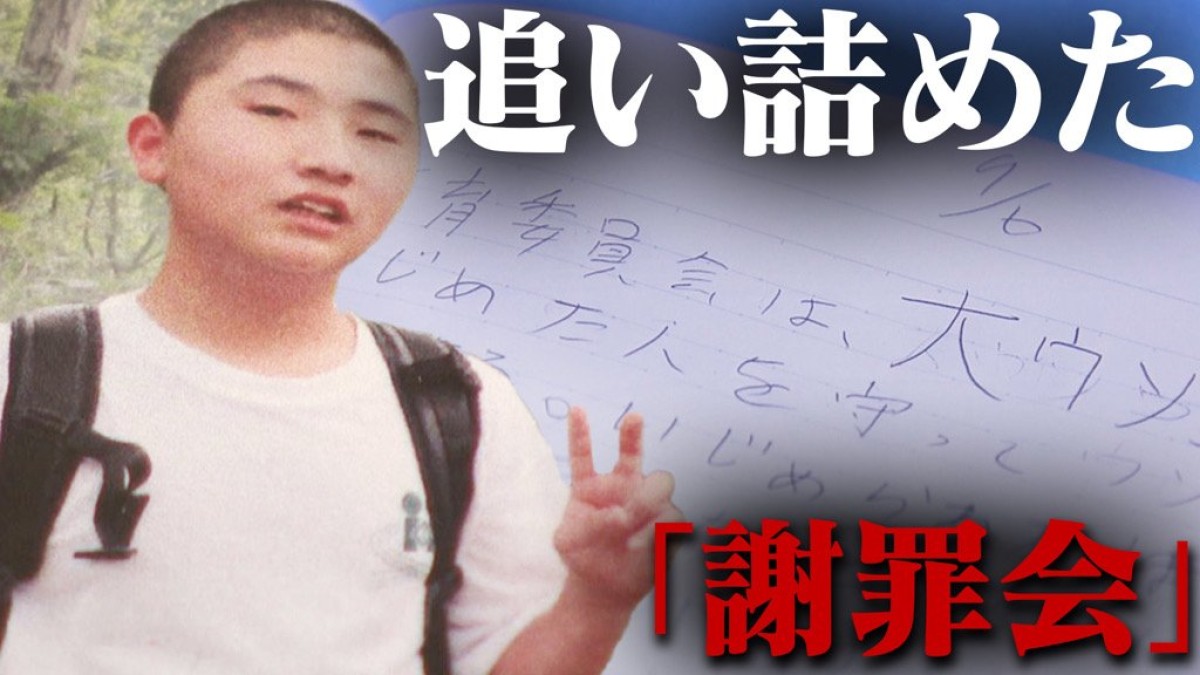 追い詰めた
9/6
育委員会は、大ウソ
じめた人を守って ウソ
いじめ
「謝罪会」